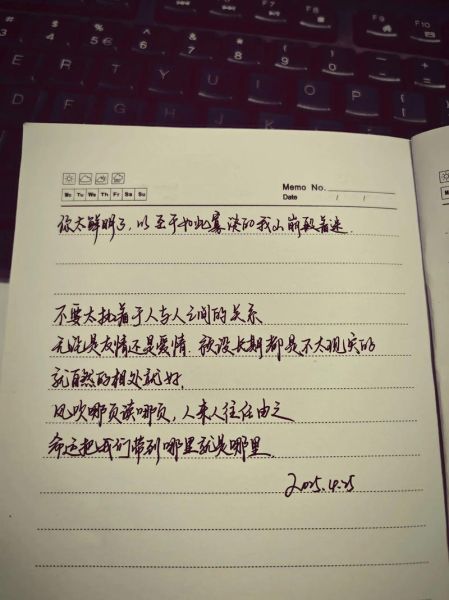 F9 F10
# 3 $ 4 % 5 € ^ 6 & 7 * 8 ( 9 ) 0
E R T Y U I O P
D F G H
Memo No.
Mo Tu We Th Fr Sa Su
Date / /
你太鲜明了,以至于如此寡淡的我山崩般着迷.
不要太执着于人与人之间的关系
无论是友情还是爱情.预设长期都是不太现实的
就自然的相处就好.
风吹哪页读哪页,人来人往任由之
命运把我们带到哪里就是哪里.
2025.4.25